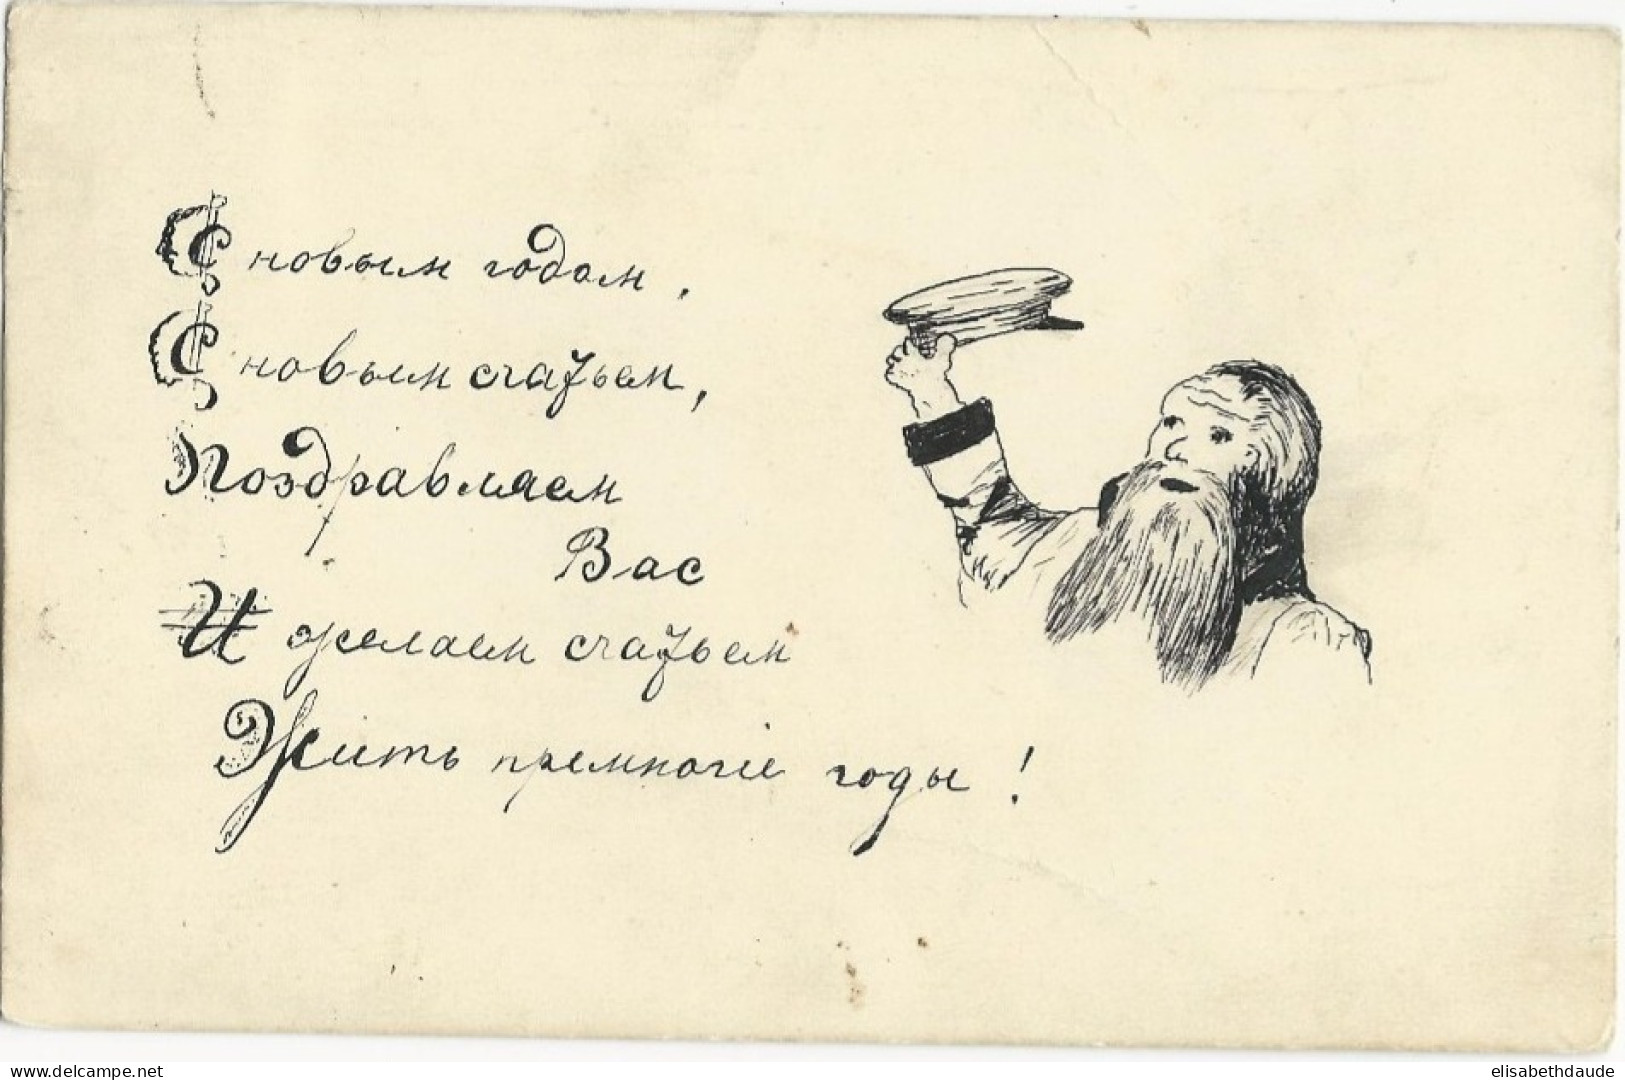 С новым годом,
С новым счастьем,
Поздравляем
Вас
И желаем счастьем
Жить премногіе годы!
www.delcampe.net
elisabethdaude